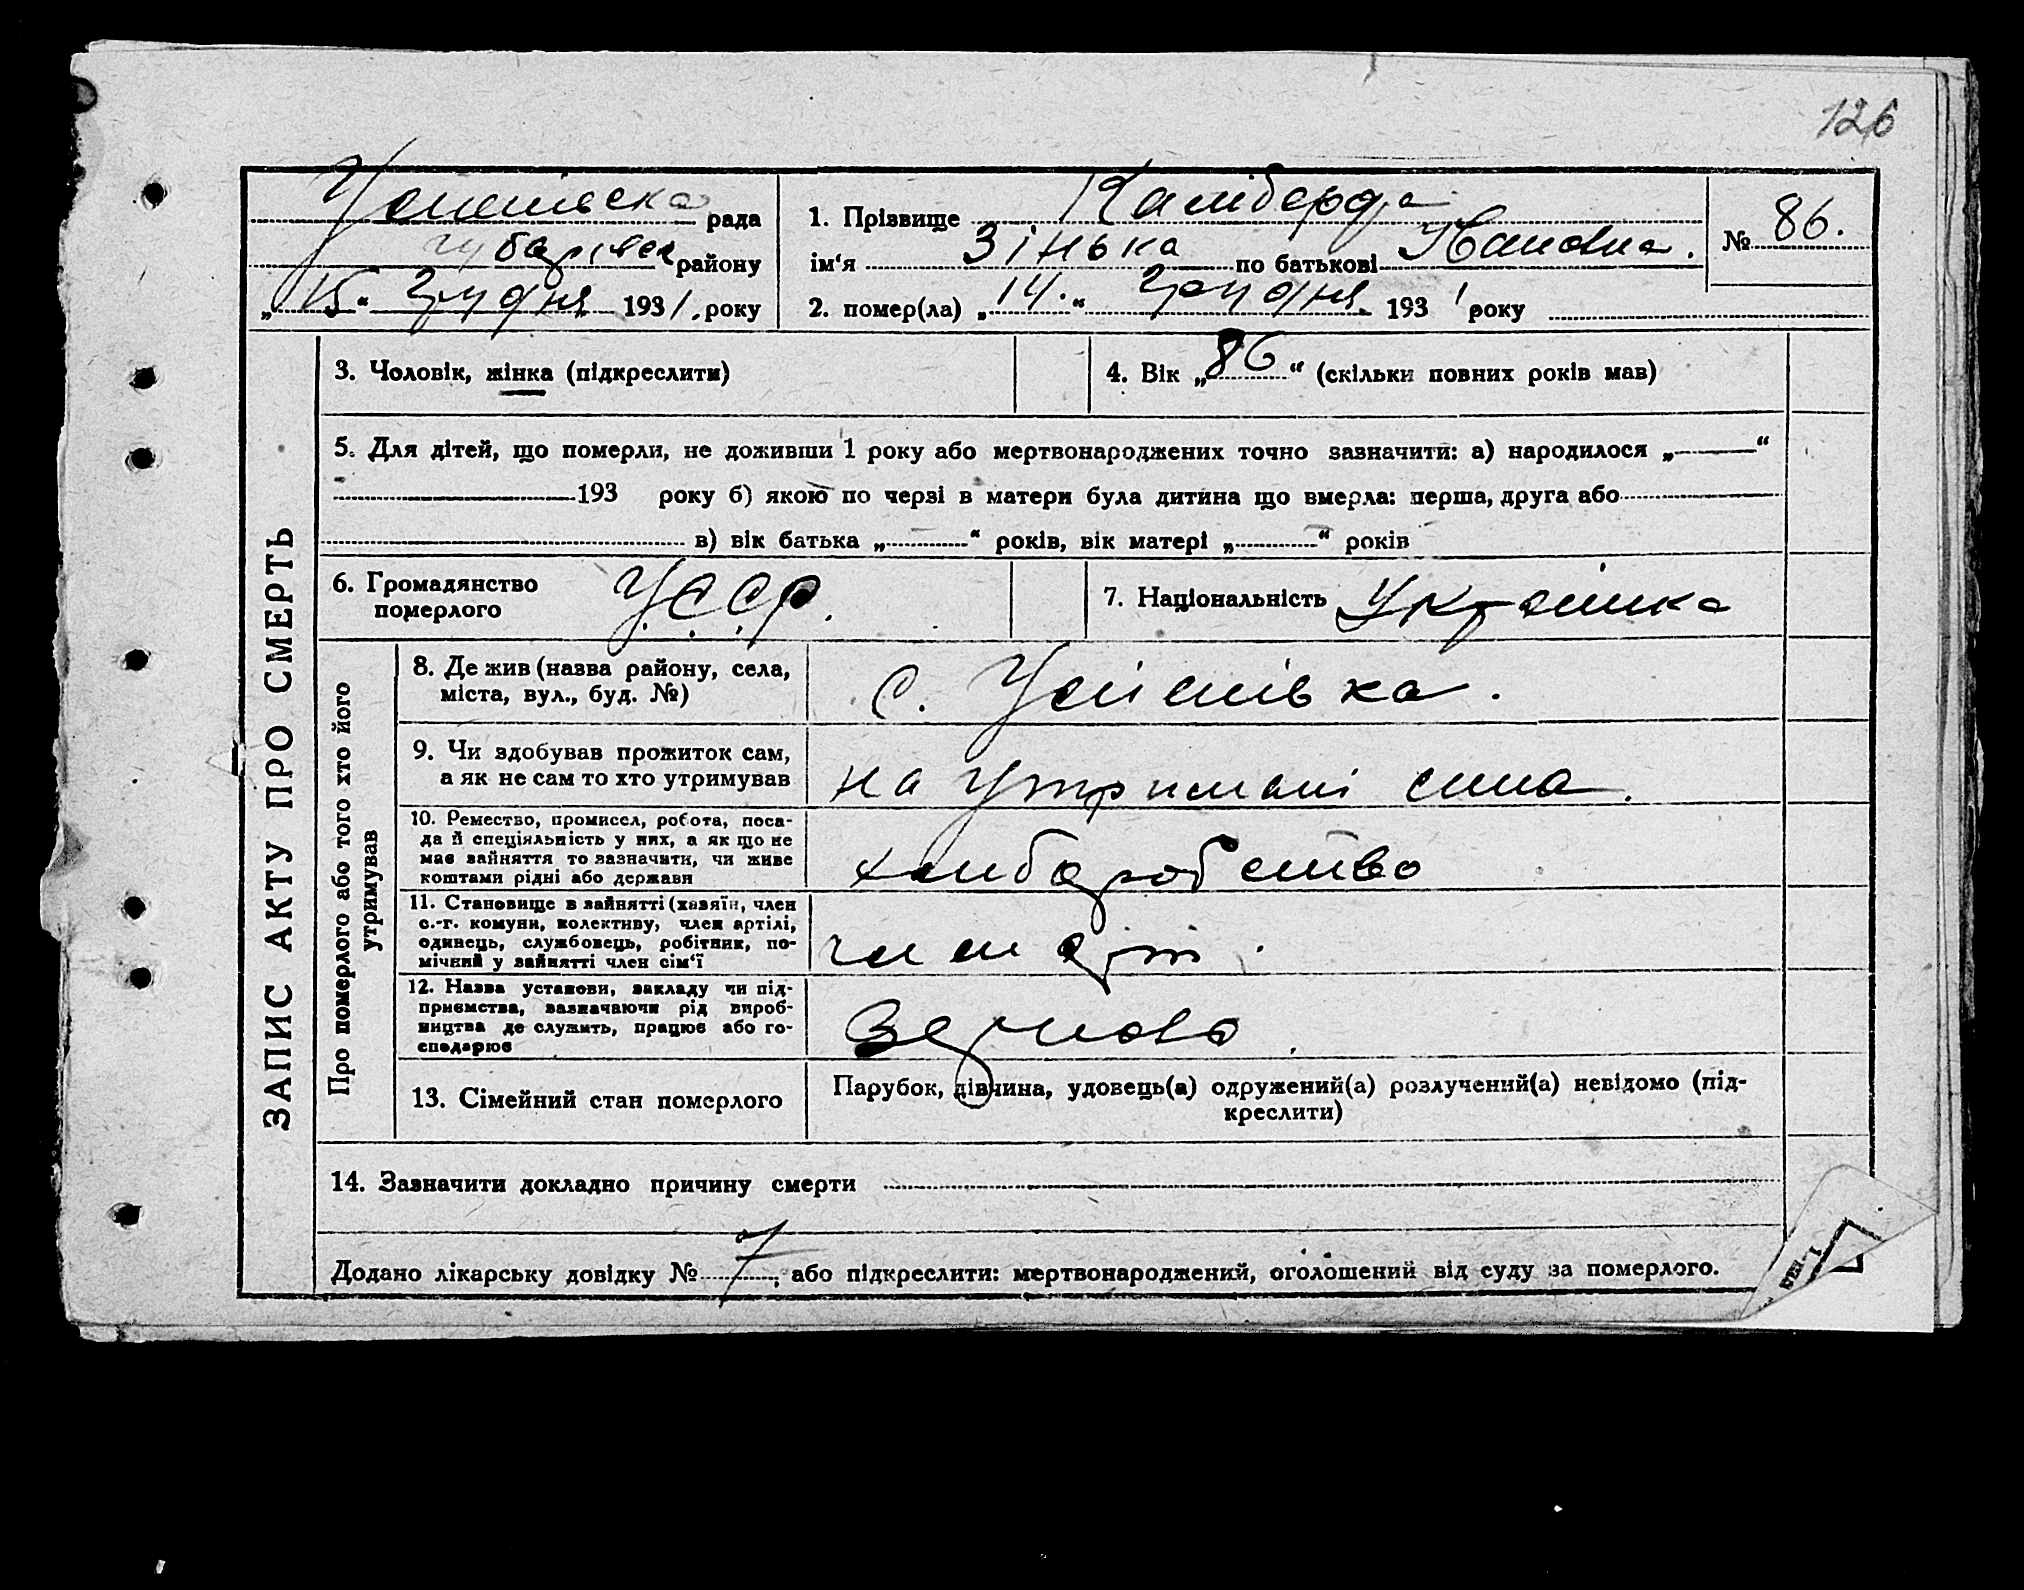 126
Успенівска рада
Чубарівск району
„15.“ Грудня 1931. року
1. Прізвище Каліберда
ім‘я Зінька по батькові Івановна.
№ 86.
2. помер(ла) „14.“ Грудня 1931 року
ЗАПИС АКТУ ПРО СМЕРТЬ
3. Чоловік, жінка (підкреслити)
4. Вік „86“ (скільки повних років мав)
5. Для дітей, що померли, не доживши 1 року або мертвонароджених точно зазначити: а) народилося „ “
193 року б) якою по черзі в матери була дитина що вмерла: перша, друга або
в) вік батька „ “ років, вік матері „ “ років
6. Громадянство
померлого
У.С.С.Р.
7. Національність Українка
Про померлого або того хто його
утримував
8. Де жив (назва району, села,
міста, вул., буд. №)
с. Успенівка.
9. Чи здобував прожиток сам,
а як не сам то хто утримував
на утримані сина.
10. Ремество, промисел, робота, поса-
да й спеціяльність у них, а як що не
має зайняття то зазначити, чи живе
коштами рідні або держави
хлиборобство
11. Становище в зайнятті (хазяїн, член
с.-г. комуни, колективу, член артілі,
одинець, службовець, робітник, по-
мічний у зайнятті член сім‘ї
член арт.
12. Назва установи, закладу чи під-
приємства, зазначаючи рід вироб-
ництва де служить, працює або го-
сподарює
Зернова.
13. Сімейний стан померлого
Парубок, дівчина, удовець(а) одружений(а) розлучений(а) невідомо (під-
креслити)
14. Зазначити докладно причину смерти
Додано лікарську довідку № 7, або підкреслити: мертвонароджений, оголошений від суду за померлого.